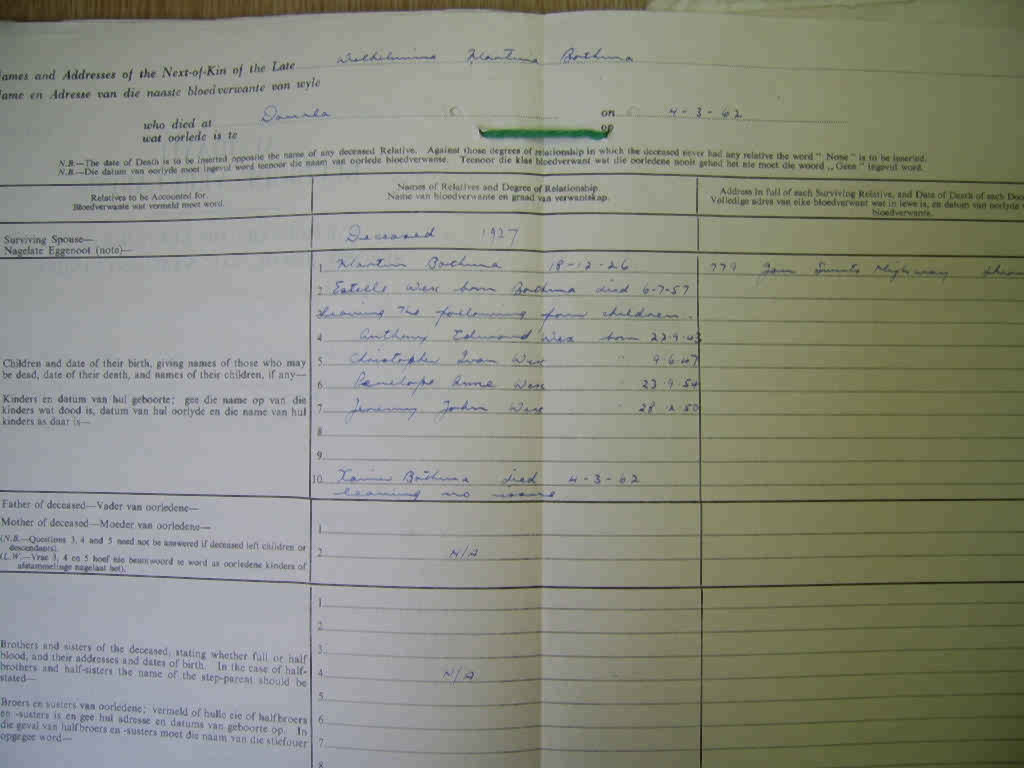 ames and Addresses of the Next-of-Kin of the Late Wilhelmina Martina Bothma
ame en Adresse van die naaste bloedverwante van wyle
who died at Douala on 4-3-62
wat oorlede is te op
N.B.—The date of Death is to be inserted opposite the name of any deceased Relative. Against those degrees of relationship in which the deceased never had any relative the word "None" is to be inserted.
N.B.—Die datum van oorlyde moet ingevul word teenoor die naam van oorlede bloedverwante. Teenoor die klas bloedverwant wat die oorledene nooit gehad het nie moet die woord „Geen" ingevul word.
Relatives to be Accounted for.
Bloedverwante wat vermeld moet word.
Names of Relatives and Degree of Relationship.
Name van bloedverwante en graad van verwantskap.
Address in full of each Surviving Relative, and Date of Death of each Dec
Volledige adres van elke bloedverwant wat in lewe is, en datum van oorlyde
bloedverwante.
Surviving Spouse—
Nagelate Eggenoot (note)—
Deceased 1927
1. Martin Bothma 18-12-26
779 Jan Smuts Highway
2 Estelle Wex born Bothma died 6-7-57
leaving the following four children.
4 Anthony Edmund Wex born 22.9.43
5 Christopher Ivan Wex " 9.6.47
6 Penelope Anne Wex " 23.9.54
7 Jeremy John Wex " 28.2.50
8
9.
10. Bothma died 4-3-62
leaving no issue
Children and date of their birth, giving names of those who may
be dead, date of their death, and names of their children, if any—
Kinders en datum van hul geboorte; gee die name op van die
kinders wat dood is, datum van hul oorlyde en die name van hul
kinders as daar is—
Father of deceased—Vader van oorledene—
Mother of deceased—Moeder van oorledene—
(N.B.—Questions 3, 4 and 5 need not be answered if deceased left children or
descendants).
(L.W.—Vrae 3, 4 en 5 hoef nie beantwoord te word as oorledene kinders of
afstammelinge nagelaat het).
1
2 N/A
Brothers and sisters of the deceased, stating whether full or half
blood, and their addresses and dates of birth. In the case of half-
brothers and half-sisters the name of the step-parent should be
stated—
Broers en susters van oorledene; vermeld of hulle eie of halfbroers
en -susters is en gee hul adresse en datums van geboorte op. In
die geval van halfbroers en -susters moet die naam van die stiefouer
opgegee word—
1
2.
3.
4 N/A
5
6.
7.
8